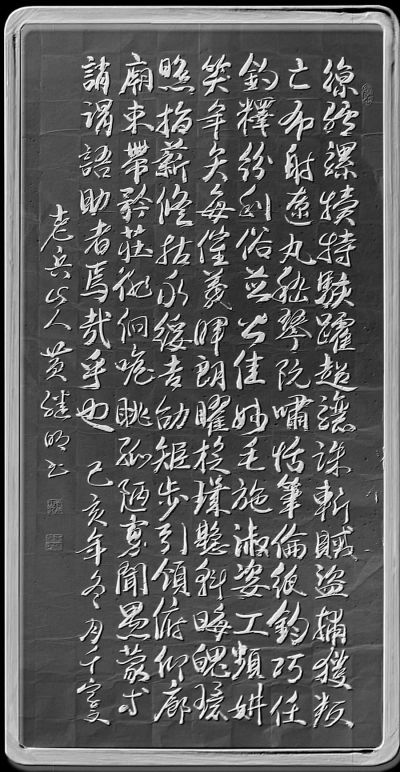 涼驢騾犢特駭躍超驤誅斬賊盜捕獲叛
亡布射遼丸嵇琴阮嘯恬筆倫紙鈞巧任
釣釋紛利俗並皆佳妙毛施淑姿工顰妍
笑年矢每催羲暉朗曜璇璣懸斡晦魄環
照指薪修祜永綏吉劭矩步引領俯仰廊
廟束帶矜莊徘徊瞻眺孤陋寡聞愚蒙等
誚謂語助者焉哉乎也 己亥年冬月千字文
老兵山人黃繼明書